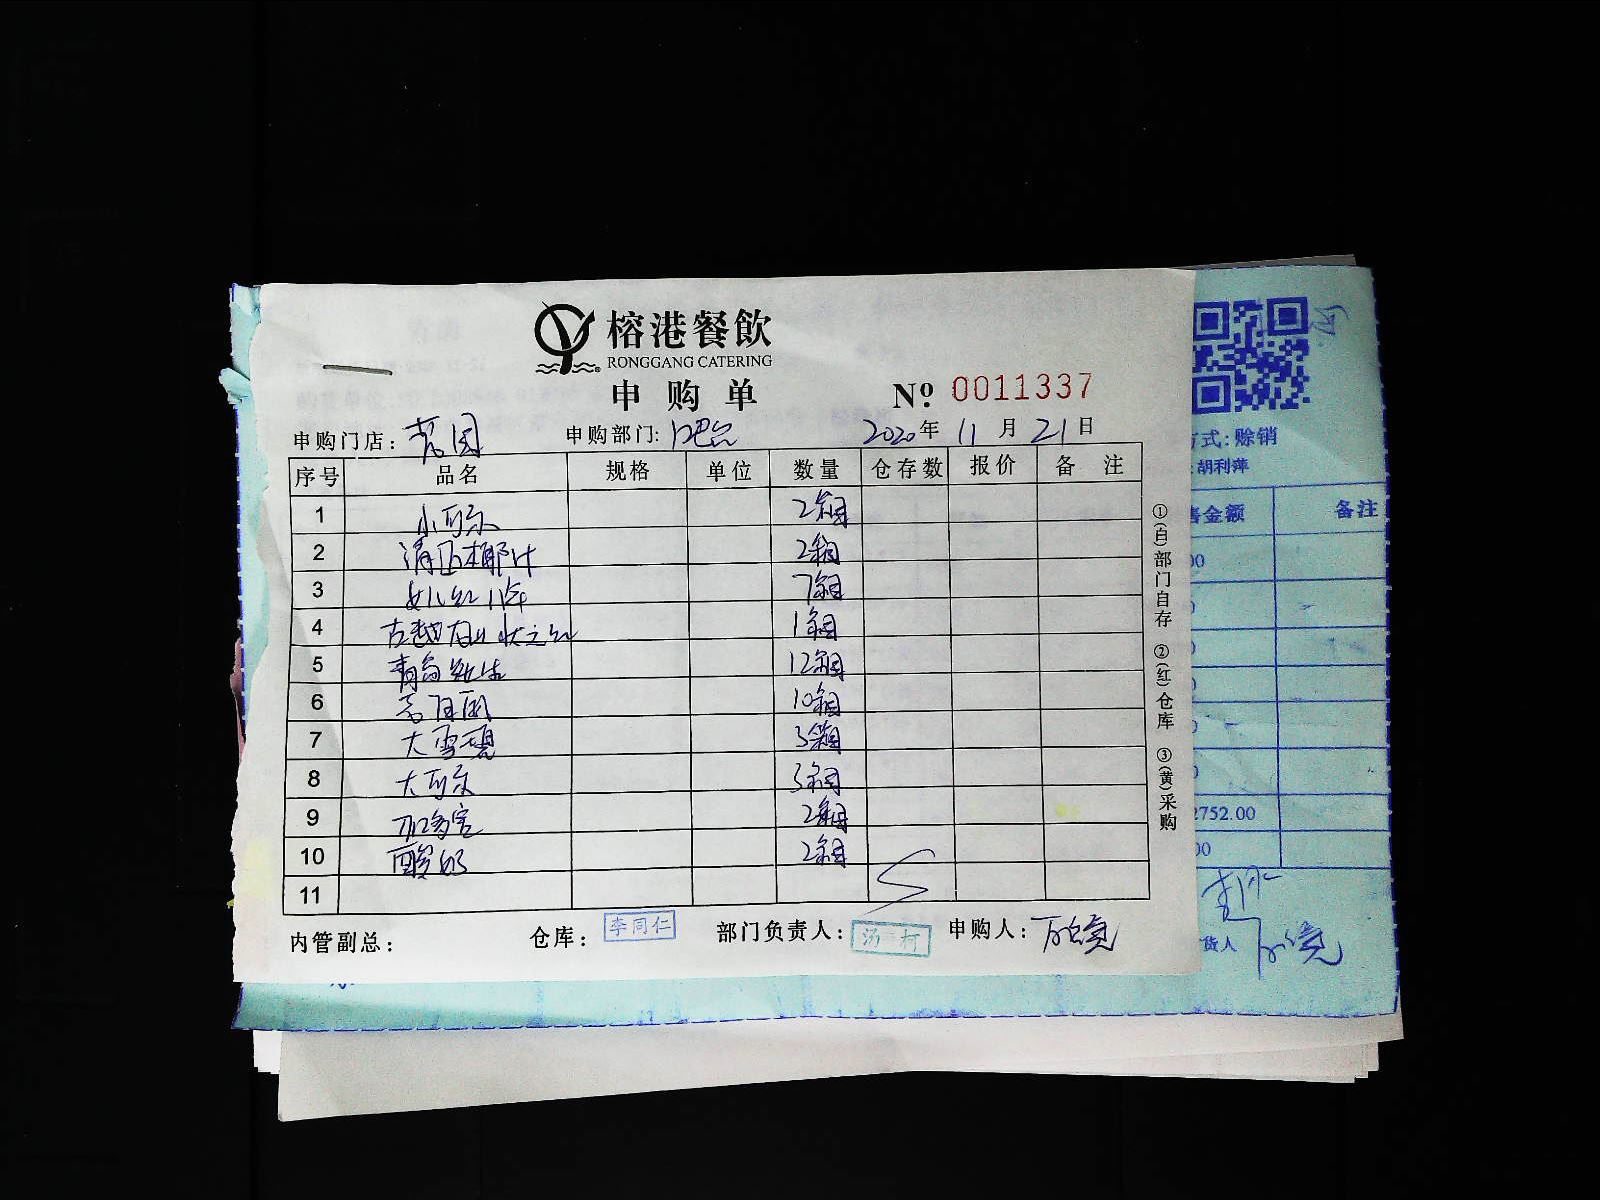 榕港餐飲
RONGGANG CATERING
申购单 № 0011337
申购门店: 申购部门: 吧台 2020年 11月 21日
序号 品名 规格 单位 数量 仓存数 报价 备注
1 小可乐 2箱
2 清正椰汁 2箱
3 女儿红 2箱
4 古越龙山状元红 1箱
5 青岛纯生 12箱
6 10箱
7 大雪碧 3箱
8 大可乐 3箱
9 加多宝 2箱
10 酸奶 2箱
11
内管副总: 仓库: 李同仁 部门负责人: 汤柯 申购人:
①(白)部门自存 ②(红)仓库 ③(黄)采购
方式: 赊销
: 胡利萍
售金额 备注
00
2752.00
00
货人